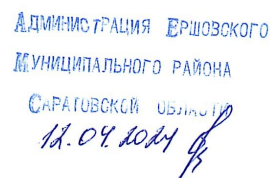 Администрация Ершовского
Муниципального района
Саратовской области
12.04.2024